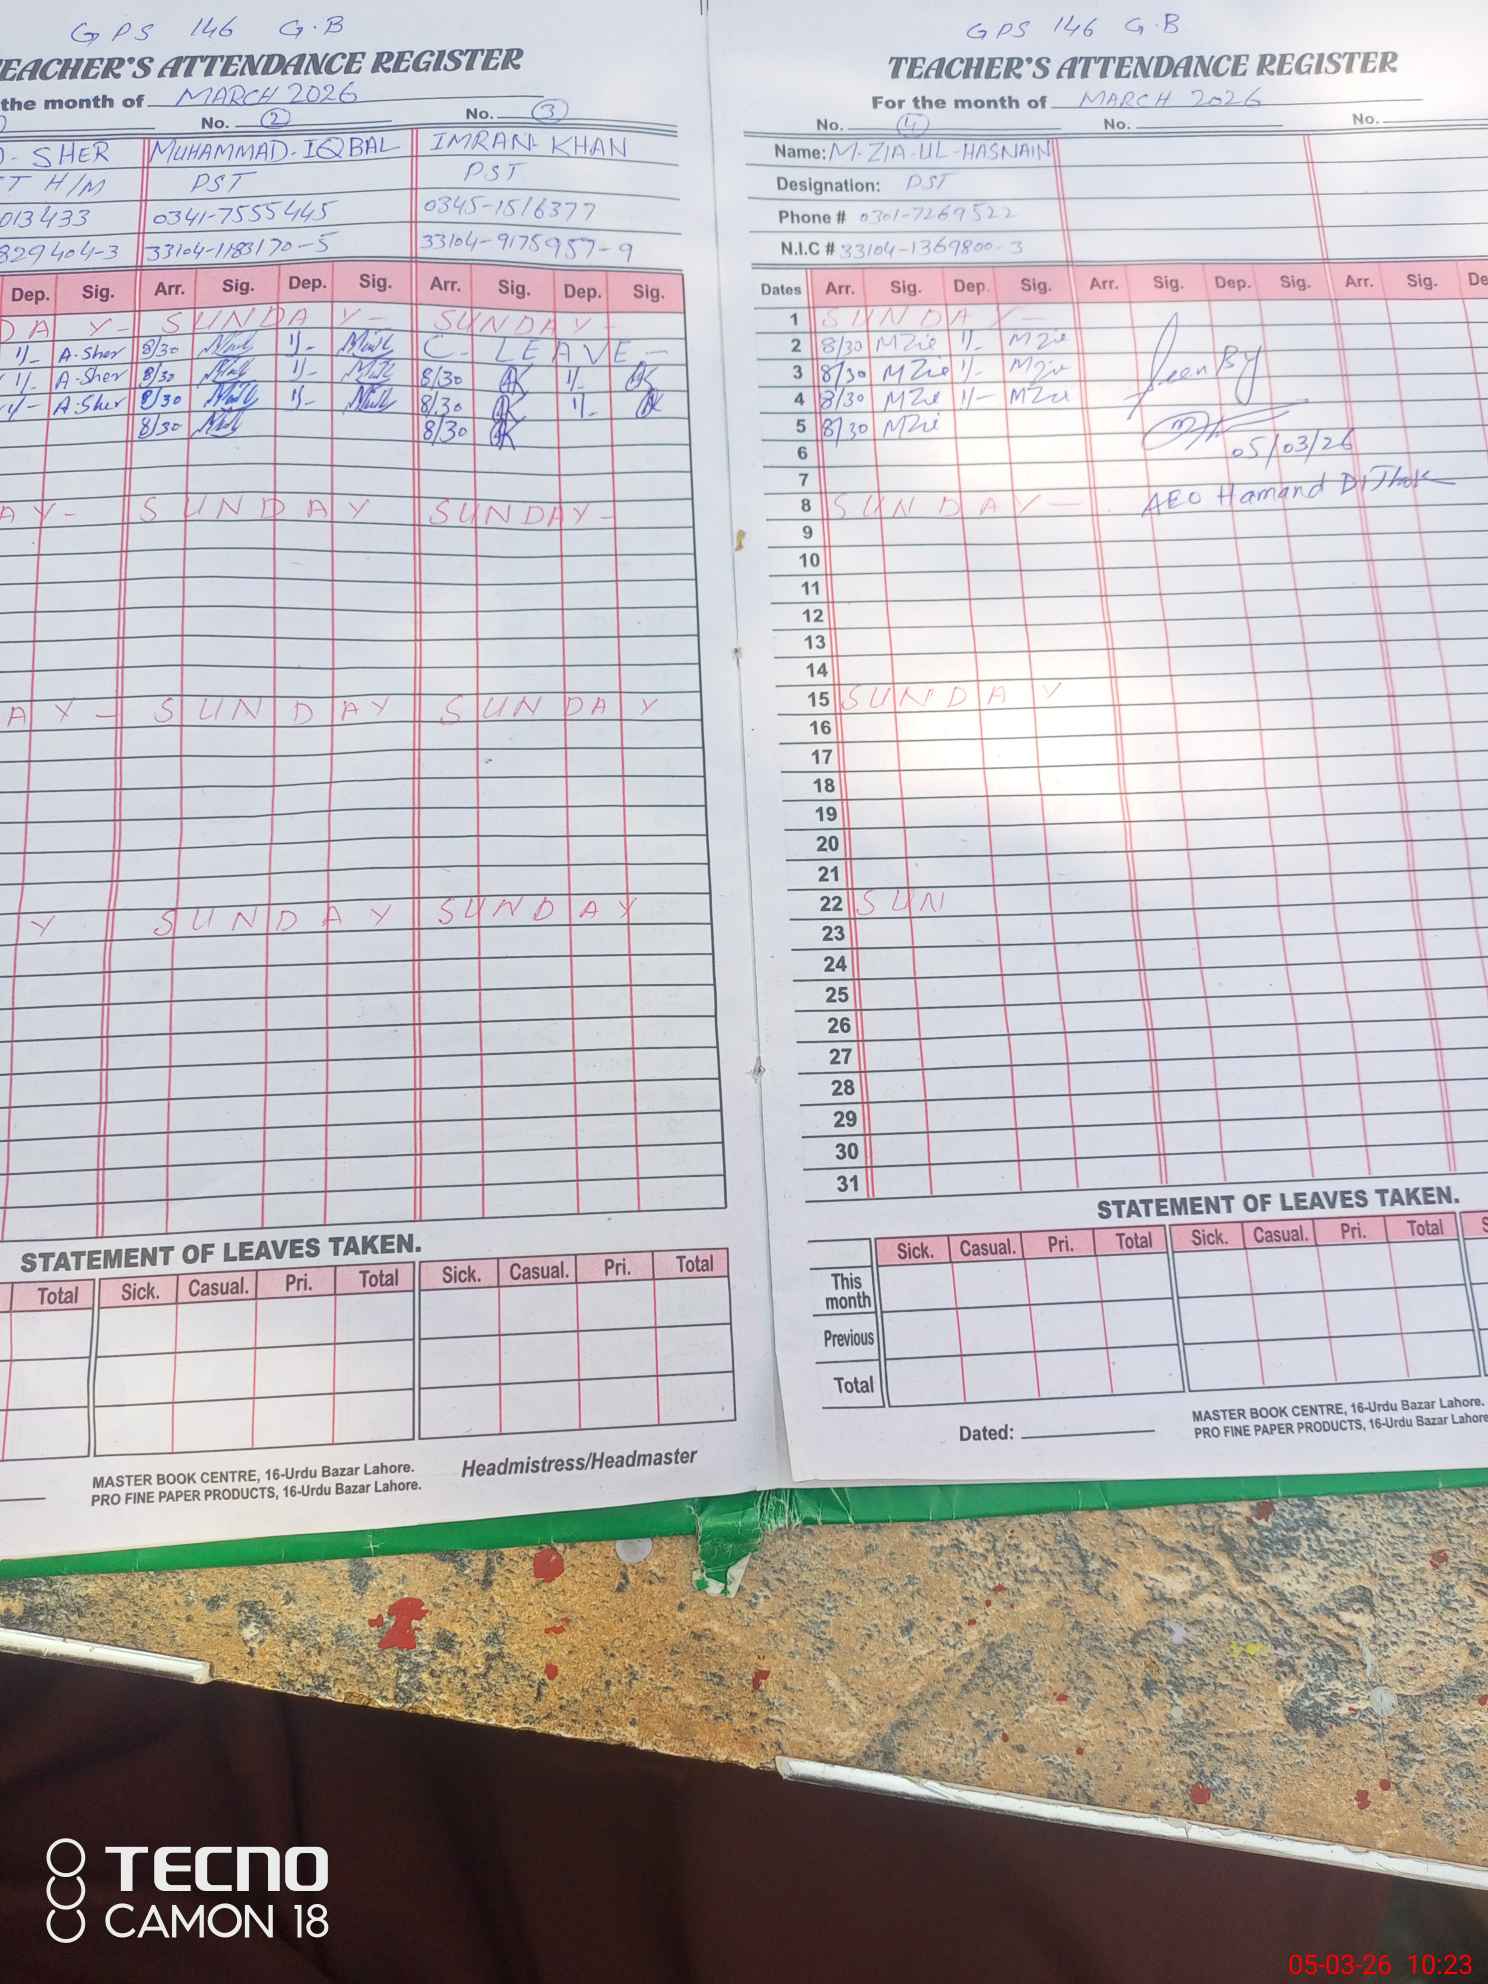 GPS 146 G.B
EACHER'S ATTENDANCE REGISTER
the month of MARCH 2026
No. 2 No. 3
SHER MUHAMMAD-IQBAL IMRAN-KHAN
T H/M PST PST
013433 0341-7555445 0345-1516377
829404-3 33104-1183170-5 33104-9175957-9
Dep. Sig. Arr. Sig. Dep. Sig. Arr. Sig. Dep. Sig.
DAY- SUNDAY- SUNDAY-
1/- A.Sher 8/30 1/- C- LEAVE-
1/- A-Sher 8/30 1/- 8/30 1/-
1/- A.Sher 8/30 1/- 8/30 1/-
8/30 8/30
AY- SUNDAY SUNDAY-
AY- SUNDAY SUNDAY
Y SUNDAY SUNDAY
STATEMENT OF LEAVES TAKEN.
Total Sick. Casual. Pri. Total Sick. Casual. Pri. Total
MASTER BOOK CENTRE, 16-Urdu Bazar Lahore.
PRO FINE PAPER PRODUCTS, 16-Urdu Bazar Lahore.
Headmistress/Headmaster
GPS 146 G.B
TEACHER'S ATTENDANCE REGISTER
For the month of MARCH 2026
No. 4 No. No.
Name: M-ZIA-UL-HASNAIN
Designation: PST
Phone # 0301-7269522
N.I.C # 33104-1369800-3
Dates Arr. Sig. Dep. Sig. Arr. Sig. Dep. Sig. Arr. Sig. De
1 SUNDAY-
2 8/30 MZie 1/- MZie
3 8/30 MZie 1/- MZie
4 8/30 MZie 1/- MZie
5 8/30 MZie
Seen By
05/03/26
AEO Hamand
6
7
8 SUNDAY-
9
10
11
12
13
14
15 SUNDAY
16
17
18
19
20
21
22 SUN
23
24
25
26
27
28
29
30
31
STATEMENT OF LEAVES TAKEN.
Sick. Casual. Pri. Total Sick. Casual. Pri. Total S
This month
Previous
Total
Dated:
MASTER BOOK CENTRE, 16-Urdu Bazar Lahore.
PRO FINE PAPER PRODUCTS, 16-Urdu Bazar Lahore
TECNO
CAMON 18
05-03-26 10:23